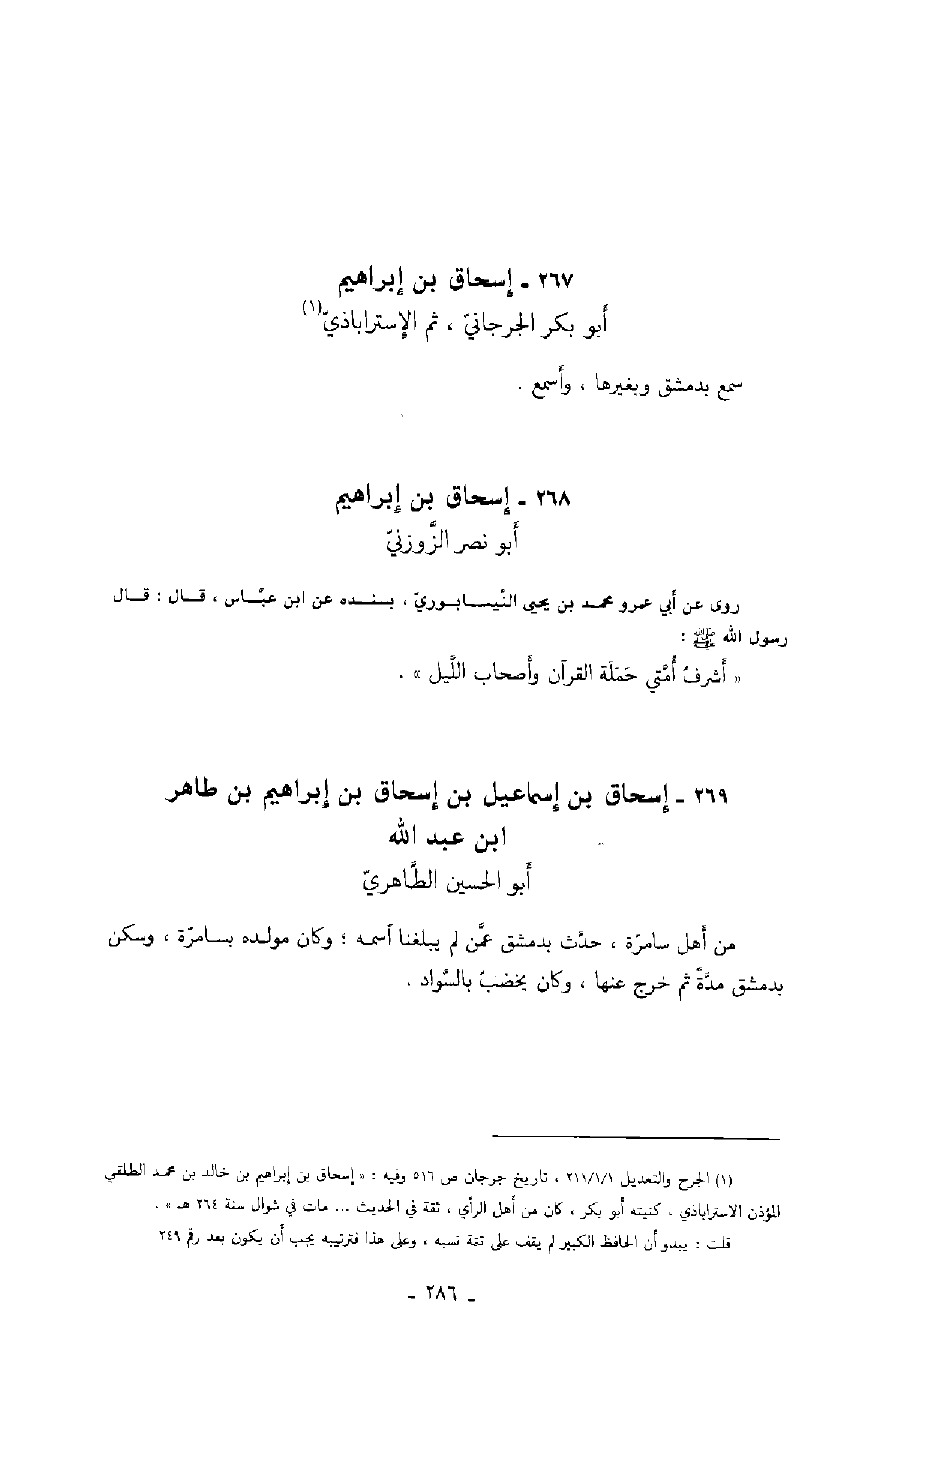 ٢٦٧ - إسحاق بن إبراهيم
أبو بكر الجرجانيّ ، ثم الإستراباذيّ(١)
سمع بدمشق وبغيرها ، وأسمع .
٢٦٨ - إسحاق بن إبراهيم
أبو نصر الزَّوزنيّ
روى عن أبي عمرو محمد بن يحيى النَّيسابوريّ ، بسنده عن ابن عبَّاس ، قال : قال
رسول الله ﷺ :
« أشرفُ أُمَّتي حَمَلَة القرآن وأصحاب اللَّيل » .
٢٦٩ - إسحاق بن إسماعيل بن إسحاق بن إبراهيم بن طاهر
ابن عبد الله
أبو الحسين الطَّاهريّ
من أهل سامرّة ، حدَّث بدمشق عمَّن لم يبلغنا اسمه ؛ وكان مولده بسامرّة ، وسكن
بدمشق مدَّةً ثم خرج عنها ، وكان يخضبُ بالسَّواد .
(١) الجرح والتعديل ٢١١/١/١ ، تاريخ جرجان ص ٥١٦ وفيه : « إسحاق بن إبراهيم بن خالد بن محمد الطلقي
المؤذن الاستراباذي ، كنيته أبو بكر ، كان من أهل الرأي ، ثقة في الحديث ... مات في شوال سنة ٢٦٤ هـ » .
قلت : يبدو أن الحافظ الكبير لم يقف على تتمة نسبه ، وعلى هذا فترتيبه يجب أن يكون بعد رقم ٢٤٩
- ٢٨٦ -